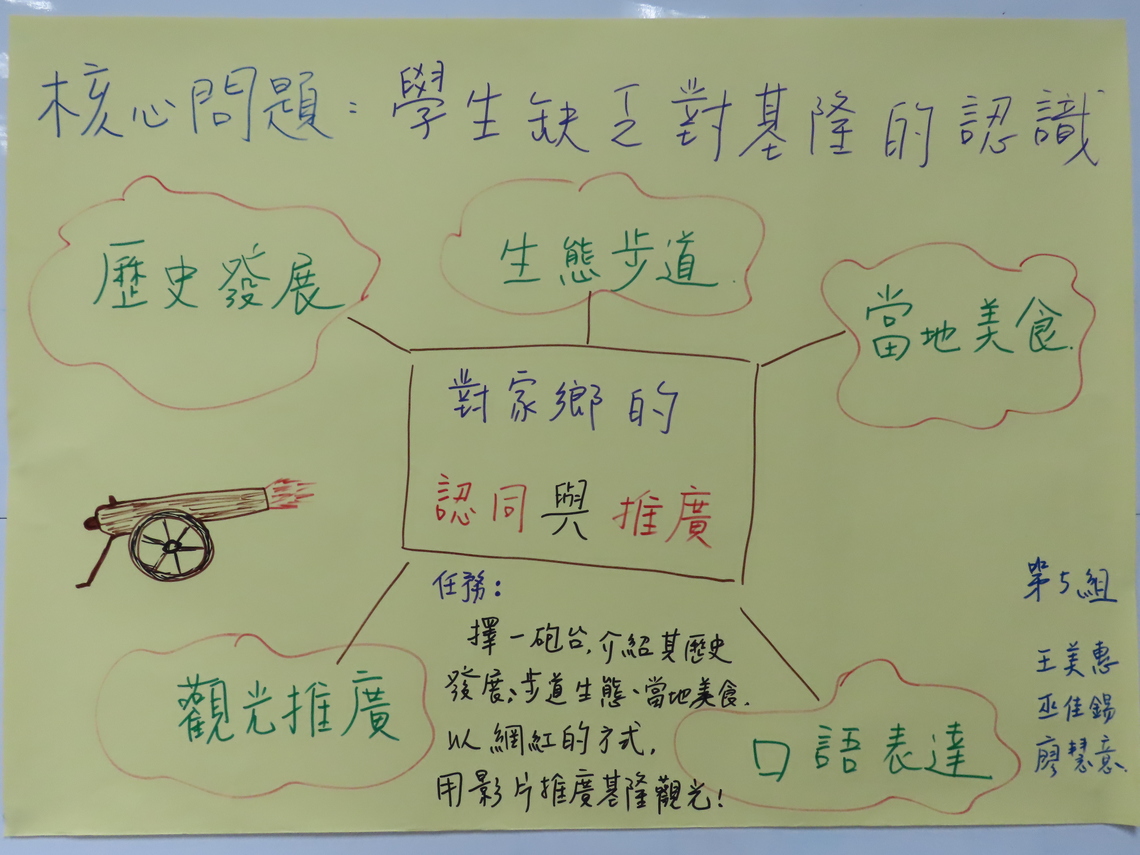 核心問題：學生缺乏對基隆的認識
歷史發展
生態步道
當地美食
對家鄉的
認同與推廣
觀光推廣
口語表達
任務：
擇一砲台,介紹其歷史
發展、步道生態、當地美食.
以網紅的方式,
用影片推廣基隆觀光!
第5組
王美惠
巫佳錫
廖慧意